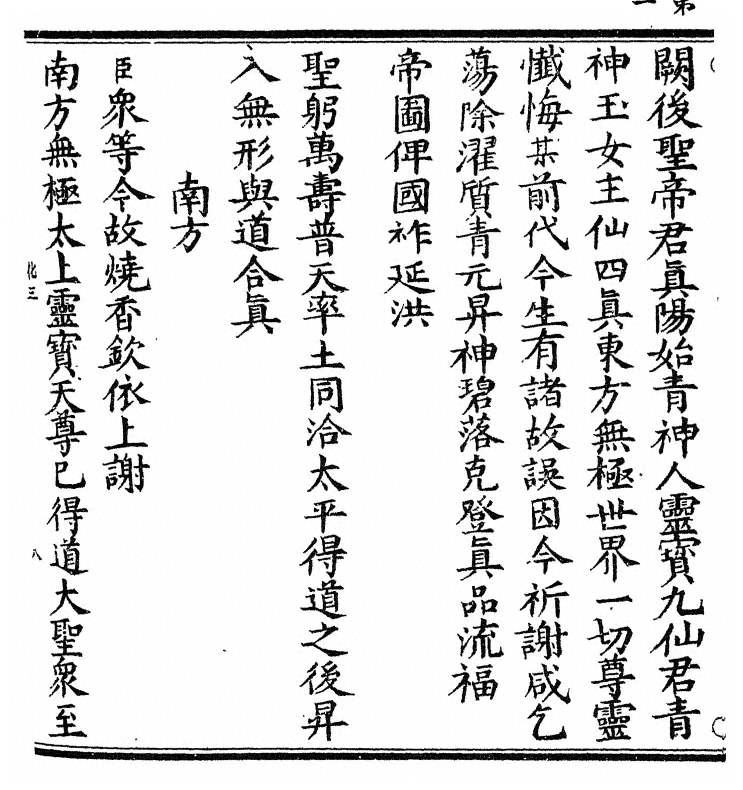 闕後聖帝君眞陽始青神人靈寳九仙君青
神玉女主仙四眞東方無極世界一切尊靈
懺悔某前代今生有諸故誤因今祈謝咸乞
蕩除濯質青元昇神碧落克登眞品流福
帝圖俾國祚延洪
聖躬萬壽普天率土同洽太平得道之後昇
入無形與道合眞
南方
臣衆等今故燒香欽依上謝
南方無極太上靈寳天尊已得道大聖衆至
化三
八